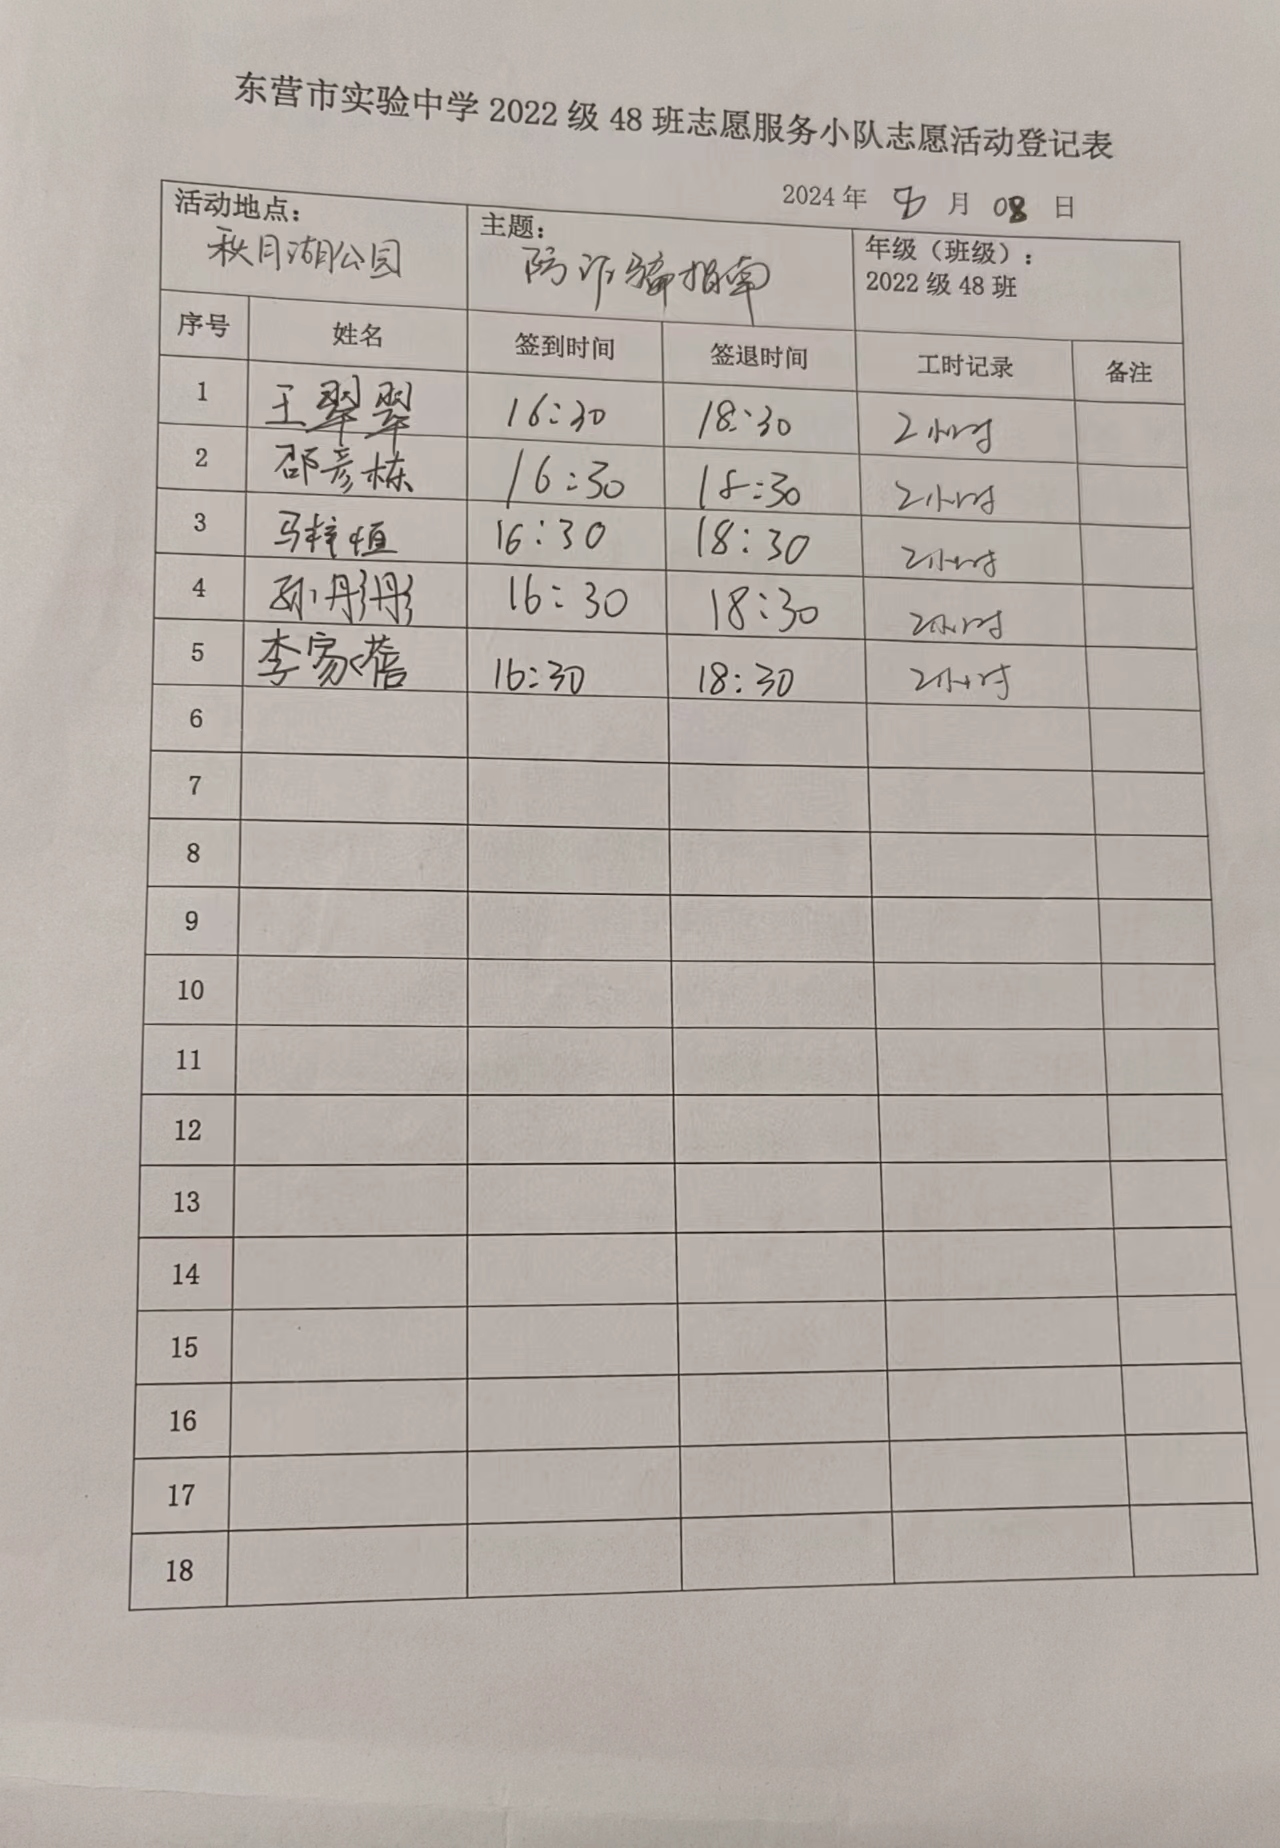 东营市实验中学 2022 级 48 班志愿服务小队志愿活动登记表
2024 年 8 月 08 日
活动地点： 主题： 年级（班级）：
秋月湖公园 防诈骗指南 2022 级 48 班
序号 姓名 签到时间 签退时间 工时记录 备注
1 王翠翠 16:30 18:30 2小时
2 邵彦栋 16:30 18:30 2小时
3 马梓恒 16:30 18:30 2小时
4 孙彤彤 16:30 18:30 2小时
5 李家蓓 16:30 18:30 2小时
6
7
8
9
10
11
12
13
14
15
16
17
18